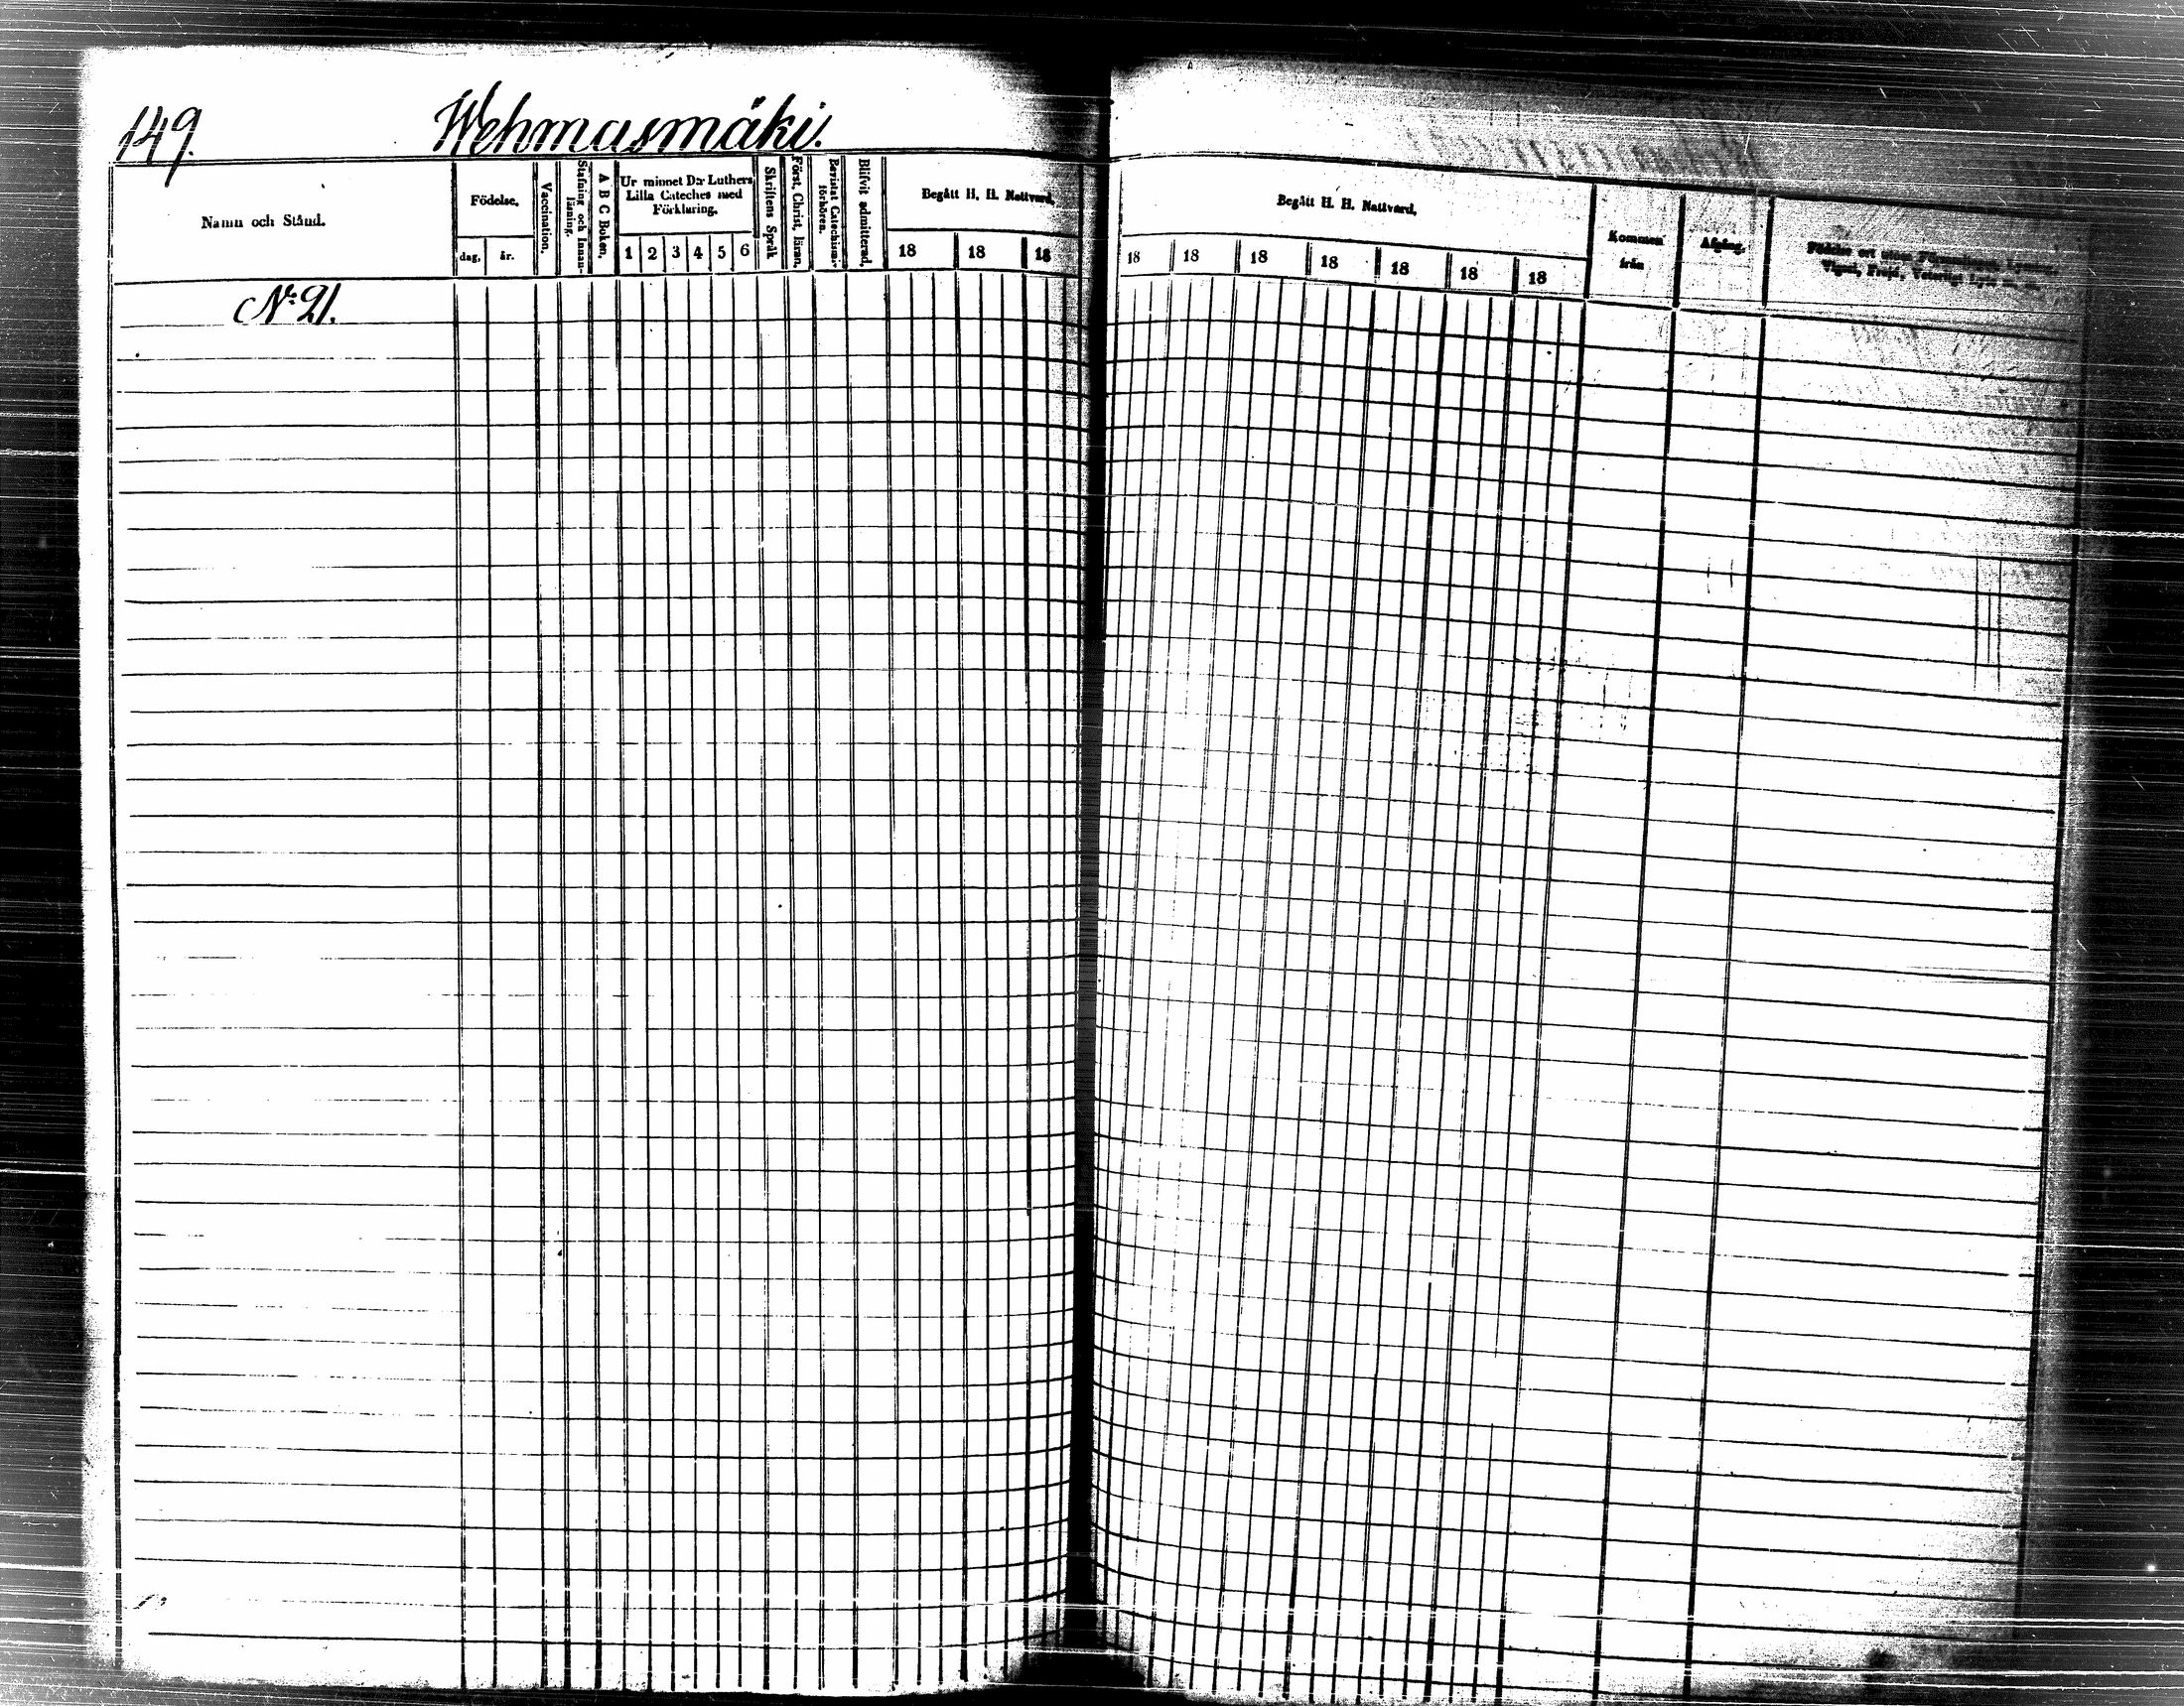 149. Wehmasmäki.
Namn och Stånd.
Födelse.
dag. år.
Vaccination.
Stafning och Innan-
läsning.
A B C Boken.
Ur minnet D:r Luthers
Lilla Cateches med
Förklaring.
1 2 3 4 5 6
Skriftens Språk
Först. Christ. läran.
Bevistat Catechismi-
förhören.
Blifvit admitterad.
Begått H. H. Nattvard.
18 18 18
Begått H. H. Nattvard.
18 18 18 18 18 18 18
Kommen
från
Afgång.
N:o 21.